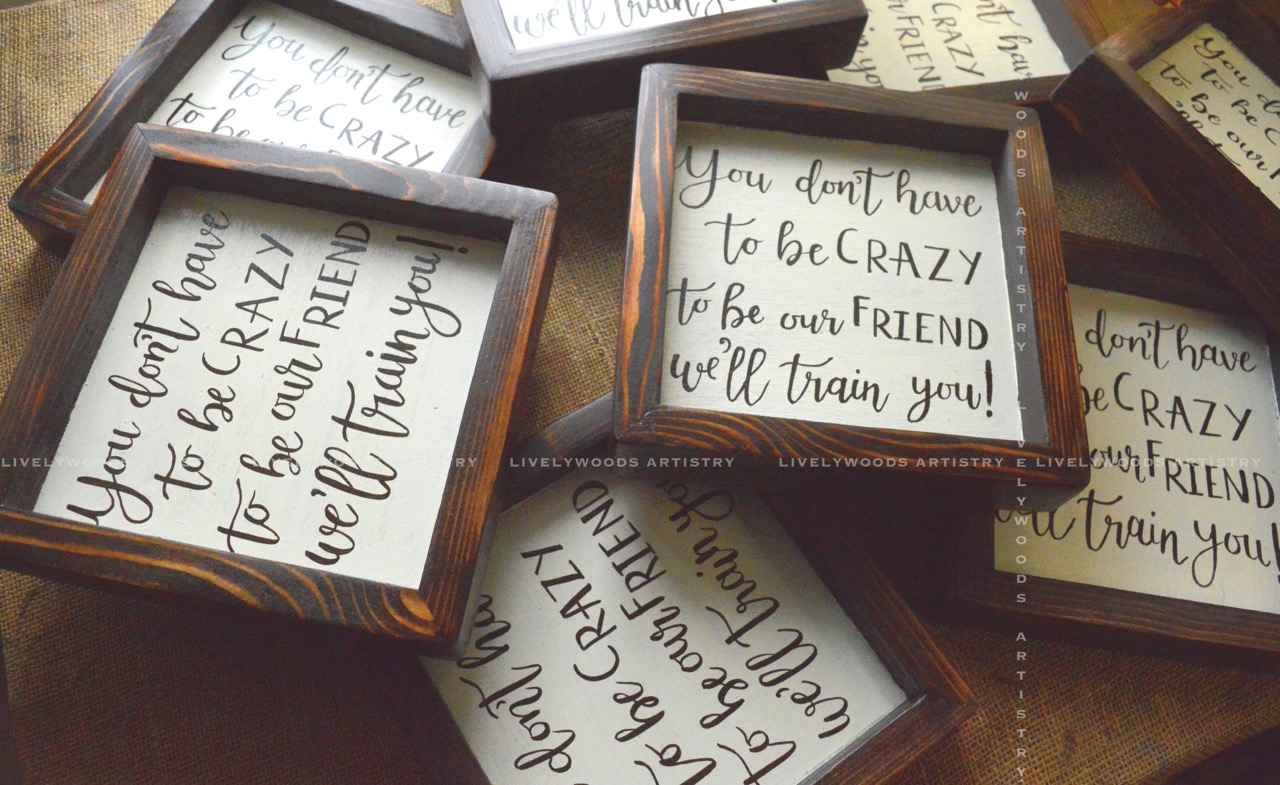 You don't have
to be CRAZY
to be
we'll train you
n't have
CRAZY
ur FRIEND
You d
to be c
to be our f
You don't have
to be CRAZY
to be our FRIEND
we'll train you!
You don't have
to be CRAZY
to be our FRIEND
we'll train you!
don't have
be CRAZY
our FRIEND
we'll train you!
don't ha
to be CRAZY
to be our FRIEND
we'll train you
LIVELYWOODS ARTISTRY
LIVELYWOODS ARTISTRY
LIVELYWOODS ARTISTRY
LIVELYWOODS ARTISTRY
WOODS ARTISTRY
LIVELYWOODS ARTISTRY